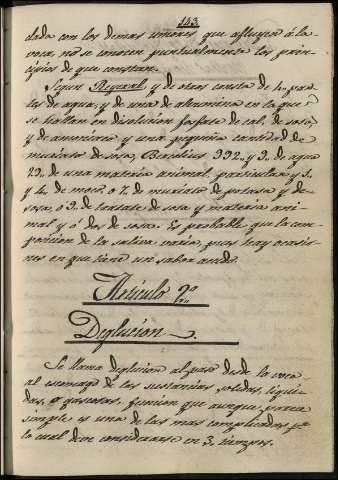 143
dada con los demas umores que afluyen á la
voca, no se conocen puntualmente los prin-
cipios de que constan.
Segun y de otros consta de 4 par-
tes de agua, y de una de alvumina en la que
se hallan en disolucion fosfato de cal, de sosa,
y de amoniaco y una pequeña cantidad de
muriato de sosa, Bercelius 992. y 9. de agua
29. de una materia animal particular y 1.
y 4. de moco o 7. de muriato de potasa y de
sosa, o 9. de tartate de sosa y materia ani-
mal y ó dos de sosa. Es probable que la com-
posicion de la saliva varia, pues hay ocasio-
nes en que tiene un sabor acedo.
Articulo 2º
Deglucion.
Se llama deglucion al paso desde la voca
al estomago de las sustancias solidas, liqui-
das, o gaseosas. funcion que aunque parece
simple es una de las mas complicadas, pr
lo cual deve considerarse en 3, tiempos.